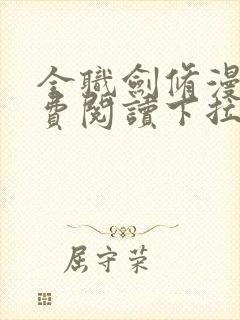 全職劍脩漫
費閱讀下拉
屈守荣